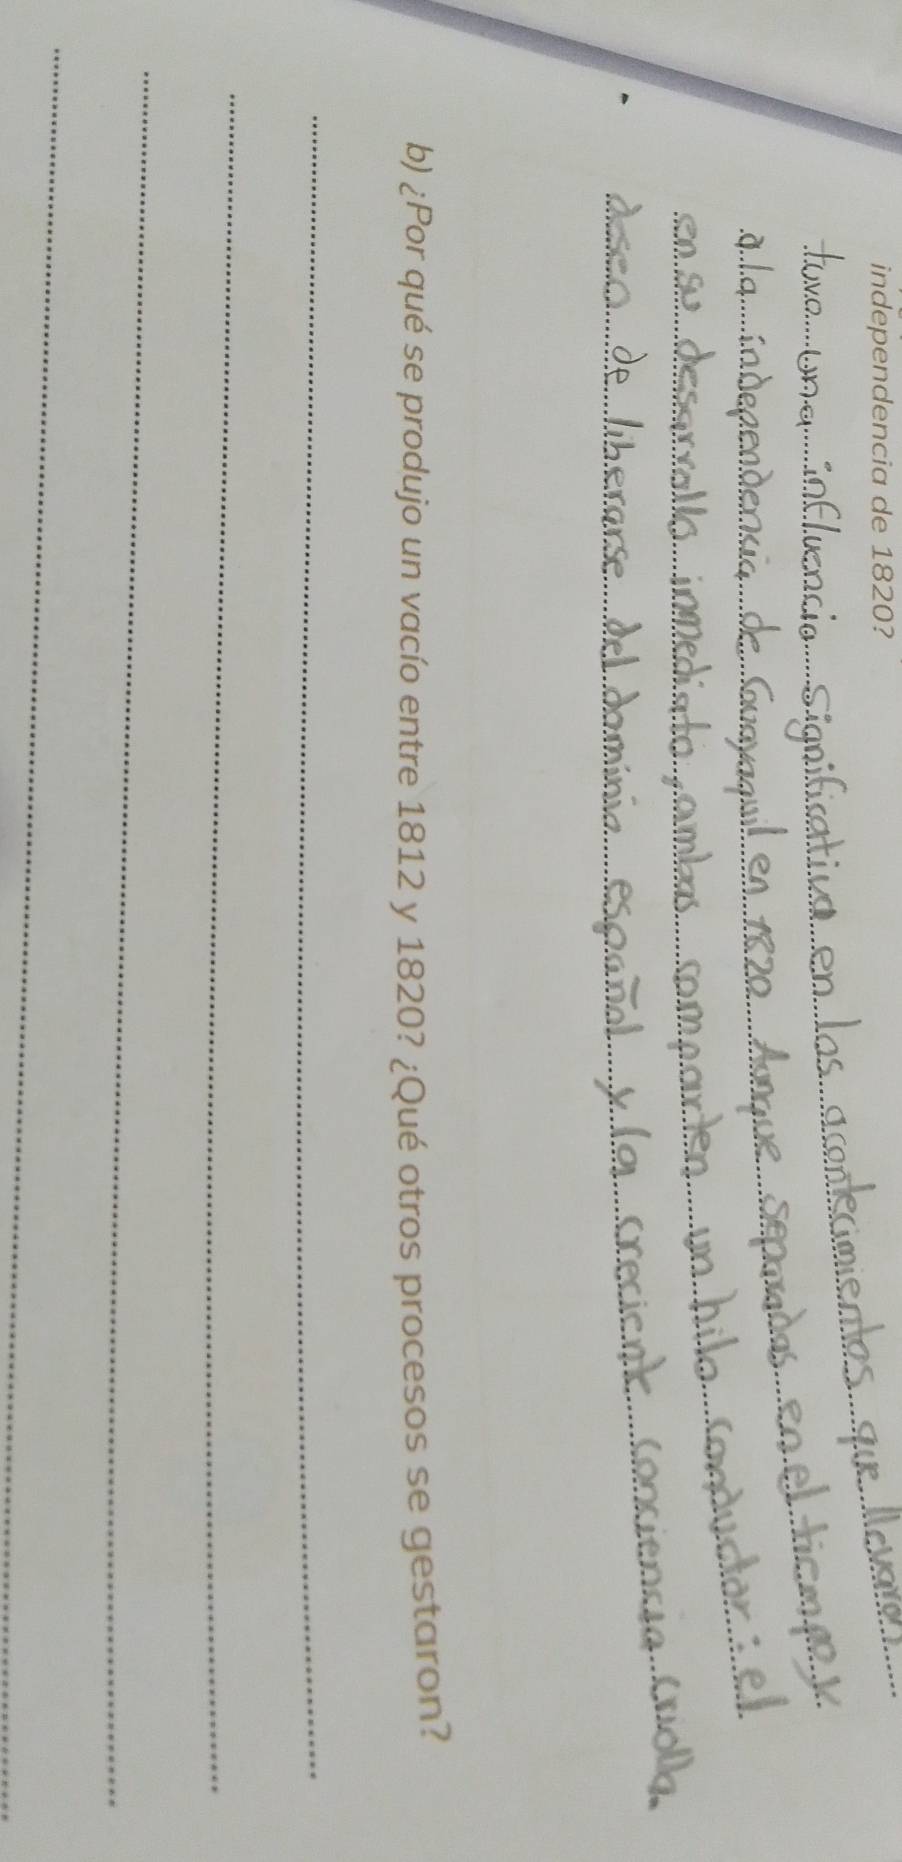 independencia de 1820?
tuvo una influencia significativa en los acontecimientos que llevaron
a la independencia de Guayaquil en 1820 Aunque separados en el tiempo y
en su desarrollo inmediato, ambos comparten un hilo conductor: el
deseo de liberarse del dominio español y la creciente conciencia criolla.
b) ¿Por qué se produjo un vacío entre 1812 y 1820? ¿Qué otros procesos se gestaron?